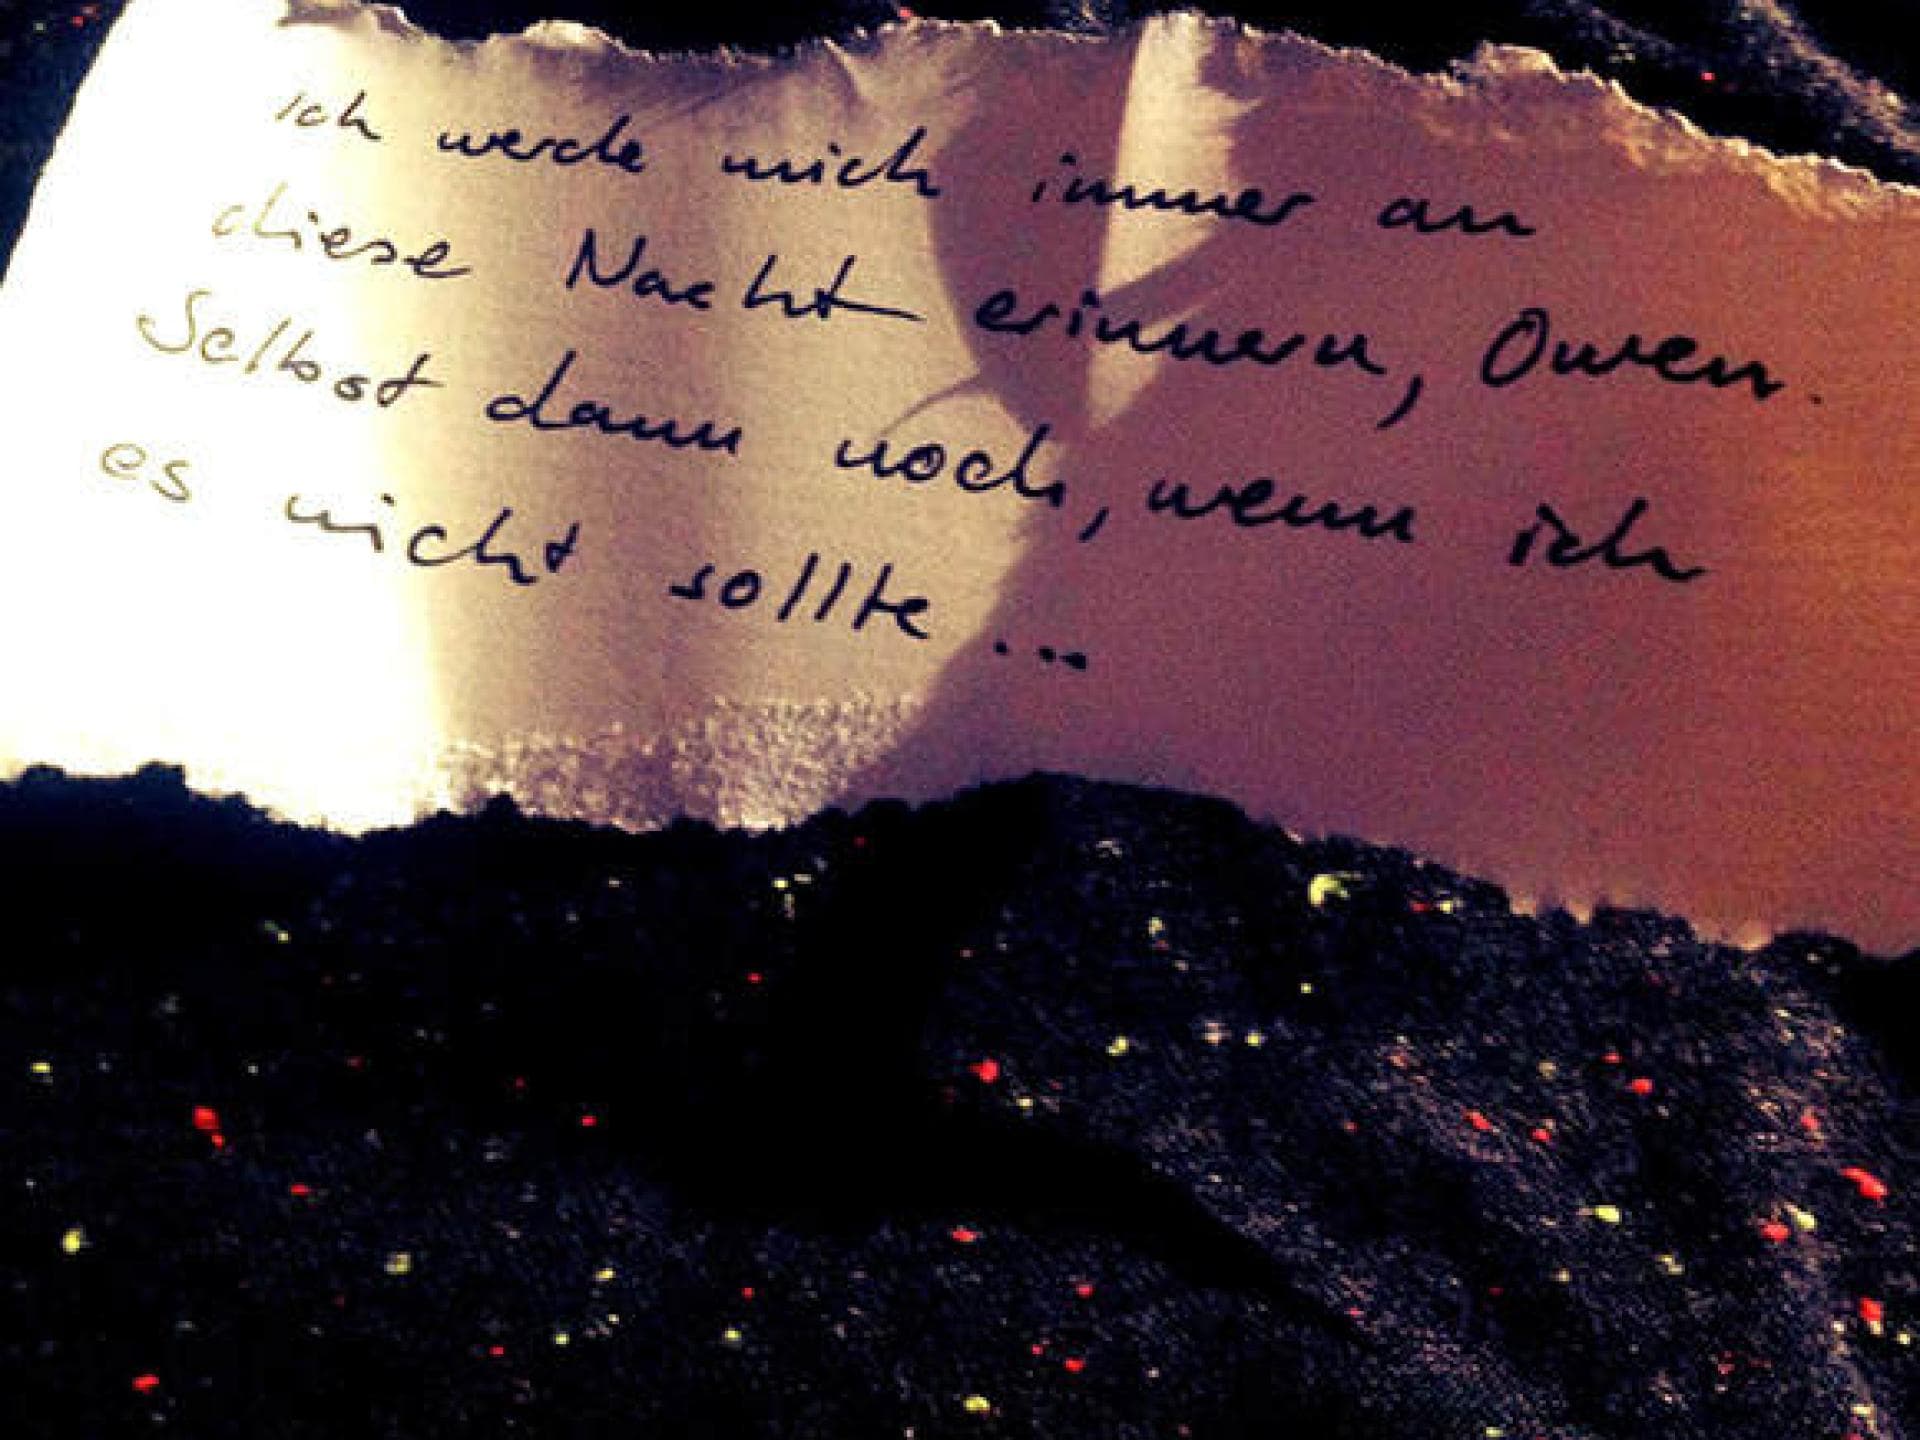 Ich werde mich immer an
diese Nacht erinnern, Owen.
Selbst dann noch, wenn ich
es nicht sollte ...